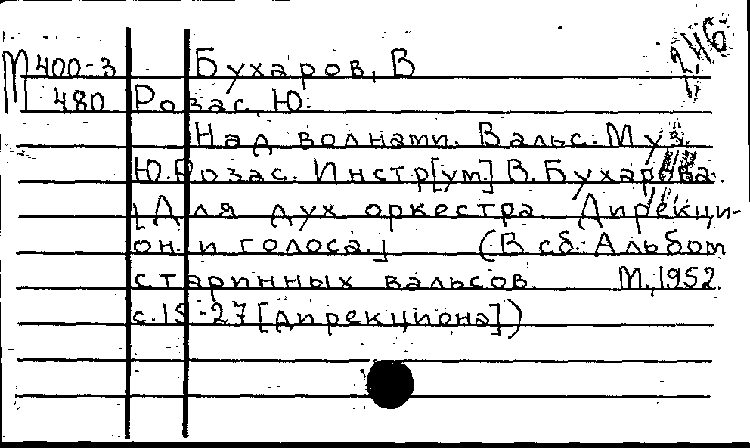 М 400-3 Бухаров, В
480 Розас, Ю.
Над волнами. Вальс. Муз.
Ю. Розас. Инстр[ум.] В. Бухарова.
[Для дух оркестра Дирекци-
он и голоса.] (В сб: Альбом
старинных вальсов М., 1952.
с. 15-27 [дирекциона])
246